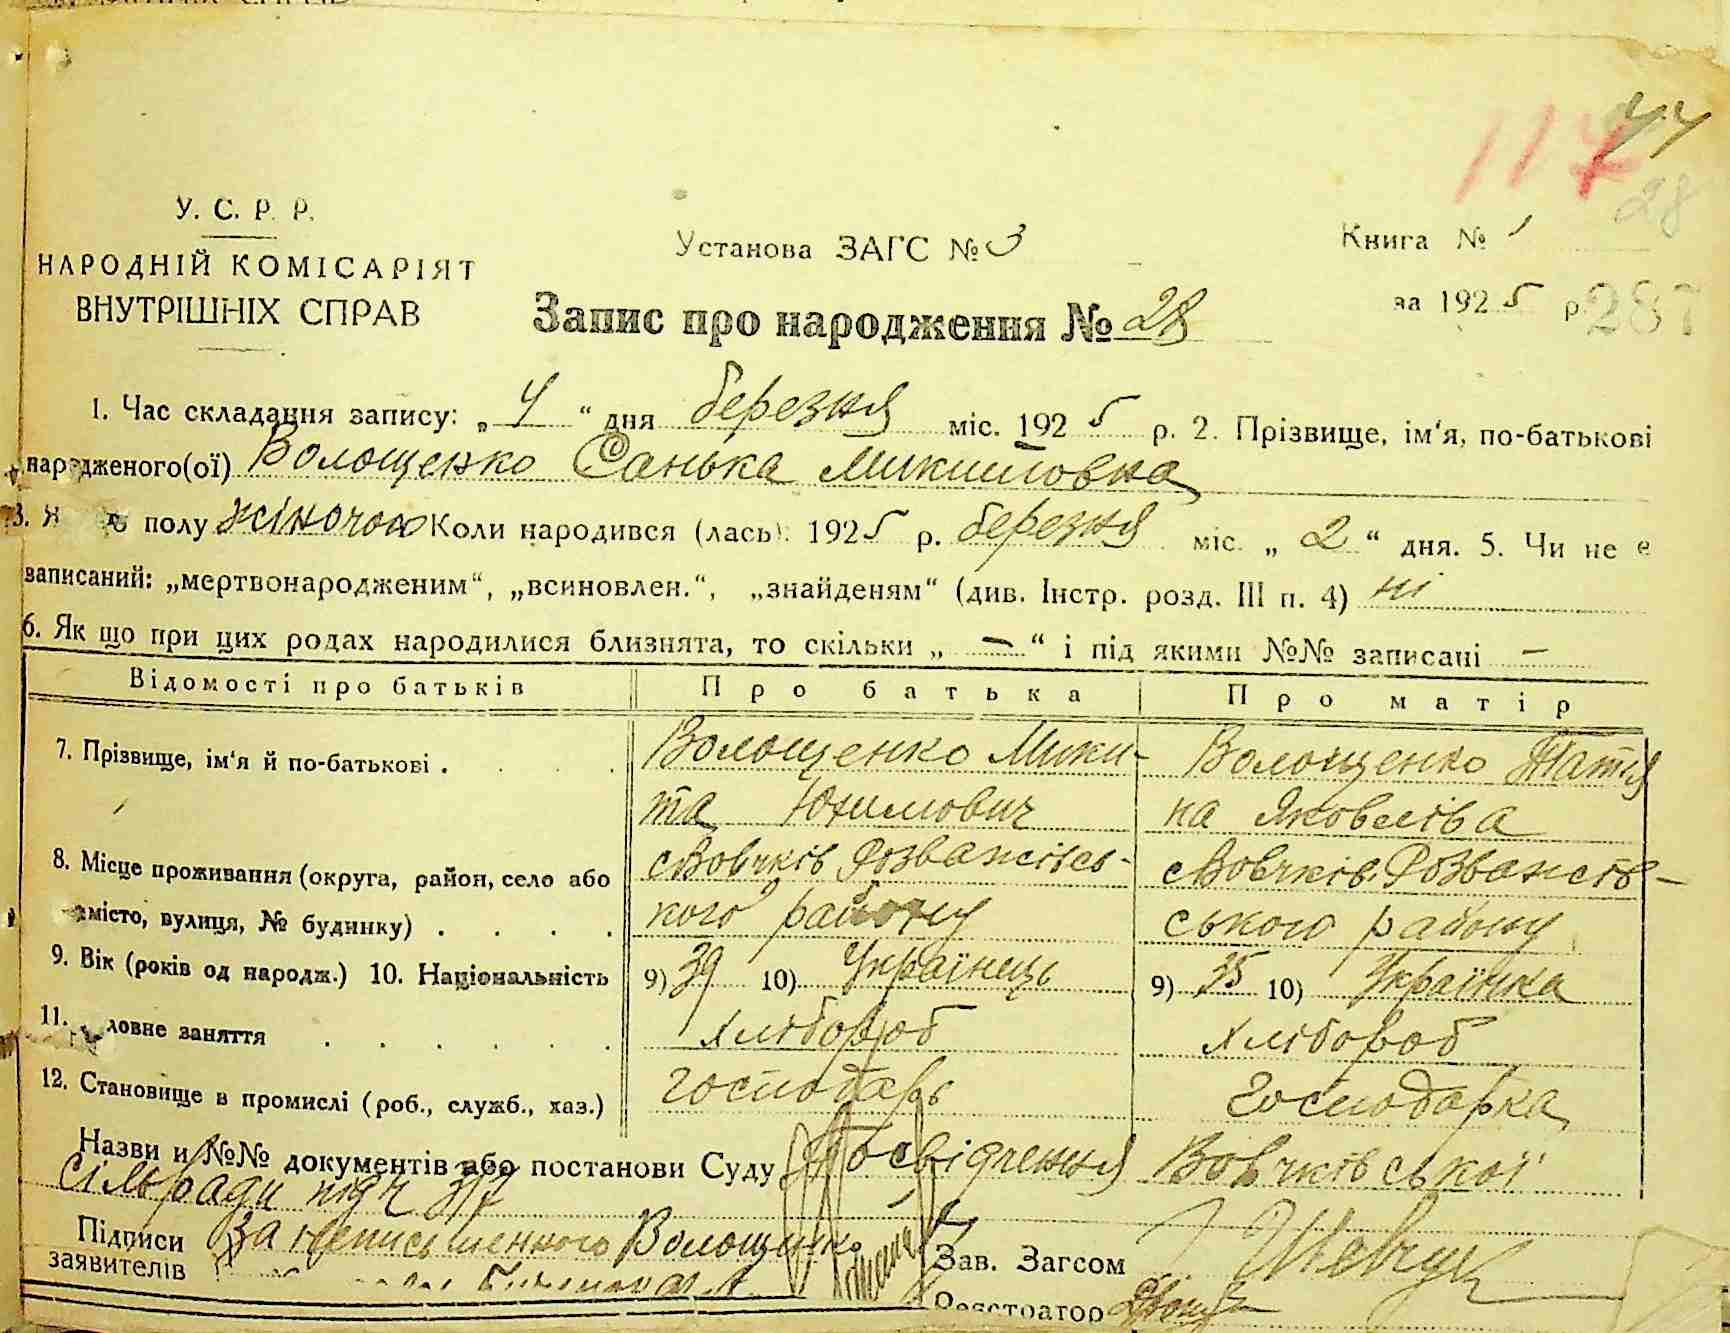 44
117
28
У. С. Р. Р.
НАРОДНІЙ КОМІСАРІЯТ
ВНУТРІШНІХ СПРАВ
Установа ЗАГС № 3
Книга № 1
за 1925 р.
287
Запис про народження № 28
1. Час складання запису: „ 4 “ дня березня міс. 1925 р. 2. Прізвище, ім‘я, по-батькові
народженого(ої) Волощенко Санька Микитовна
3. полу жіночого Коли народився (лась). 1925 р. березня міс. „ 2 “ дня. 5. Чи не є
записаний: „мертвонародженим“, „всиновлен.“, „знайденям“ (див. Інстр. розд. III п. 4) ні
6. Як що при цих родах народилися близнята, то скільки „ — “ і під якими №№ записані —
Відомості про батьків Про батька Про матір
7. Прізвище, ім‘я й по-батькові . Волощенко Мики- Волощенко Татія
та Юхимович на Яковлівa
8. Місце проживання (округа, район, село або с Вовчків Розважівсь- с Вовчків Розважів-
місто, вулиця, № будинку) . кого району ського району
9. Вік (років од народж.) 10. Національність 9) 39 10) Українець 9) 35 10) Українка
11. ловне заняття хлібороб хлібороб
12. Становище в промислі (роб., служб., хаз.) господарь господарка
Назви и №№ документів або постанови Суду Посвідчення Вовчківської
сільради під ч 37
Підписи За неписьменного Волощенко Зав. Загсом Шевчук
заявителів
Реєстратор